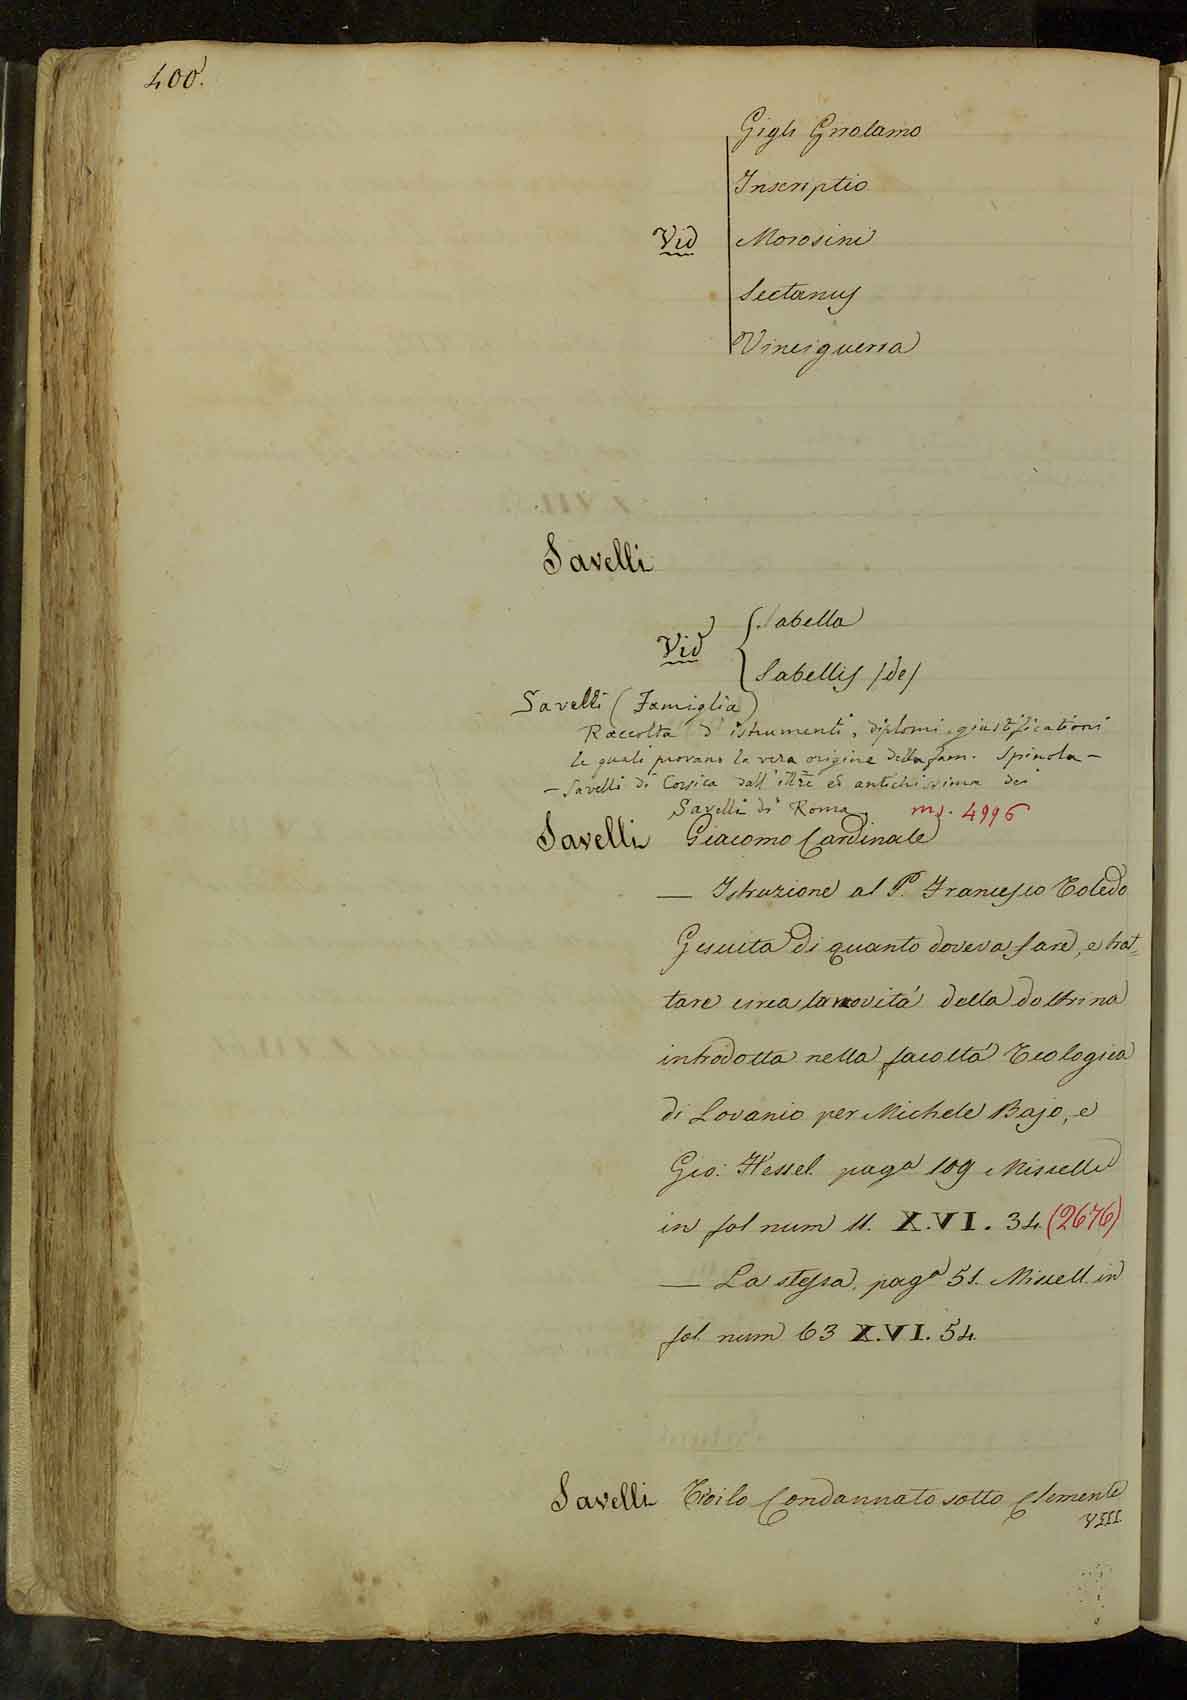 400.
Gigli Girolamo
Inscriptio
Vid Morosini
Sectanus
Vinciguerra
Savelli
Sabella
Vid
Sabellis (de)
Savelli (Famiglia)
Raccolta d'istrumenti, diplomi, giustificationi
le quali provano la vera origine della fam. Spinola-
-Savelli di Corsica dall' illre ed antichissima dei
Savelli di Roma. ms. 4996
Savelli Giacomo Cardinale
— Istruzione al P. Francesco Toledo
Gesuita di quanto doveva fare, e trat=
tare circa la novitá della dottrina
introdotta nella facoltá Teologica
di Lovanio per Michele Bajo, e
Gio: Hessel. paga 109 Miscell
in fol num 11. X.VI. 34 (2676)
— La stessa, paga 51. Miscell. in
fol. num 63 X.VI. 54.
Savelli Troilo Condannato sotto Clemente
VIII